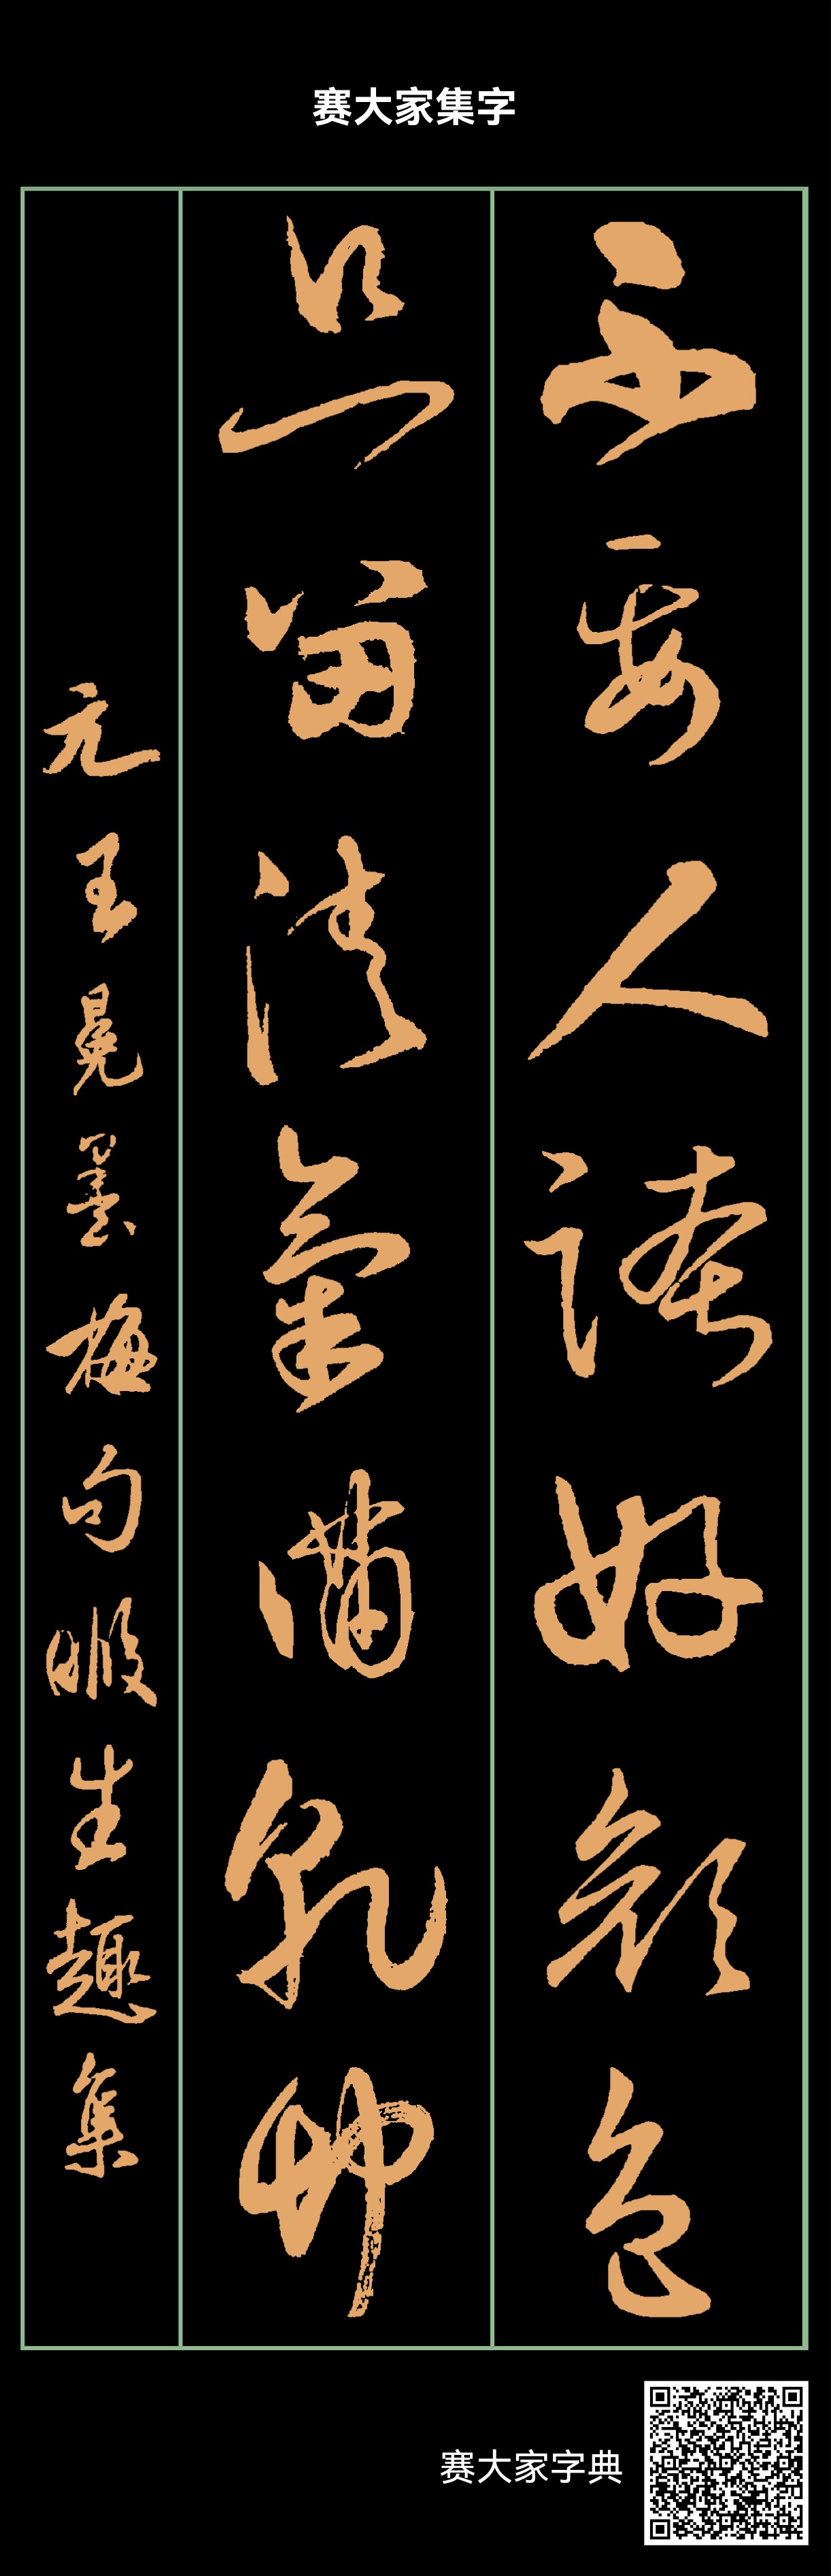 赛大家集字
不要人誇好顏色
只留清氣滿乾坤
元王冕墨梅句暇生趣集
赛大家字典